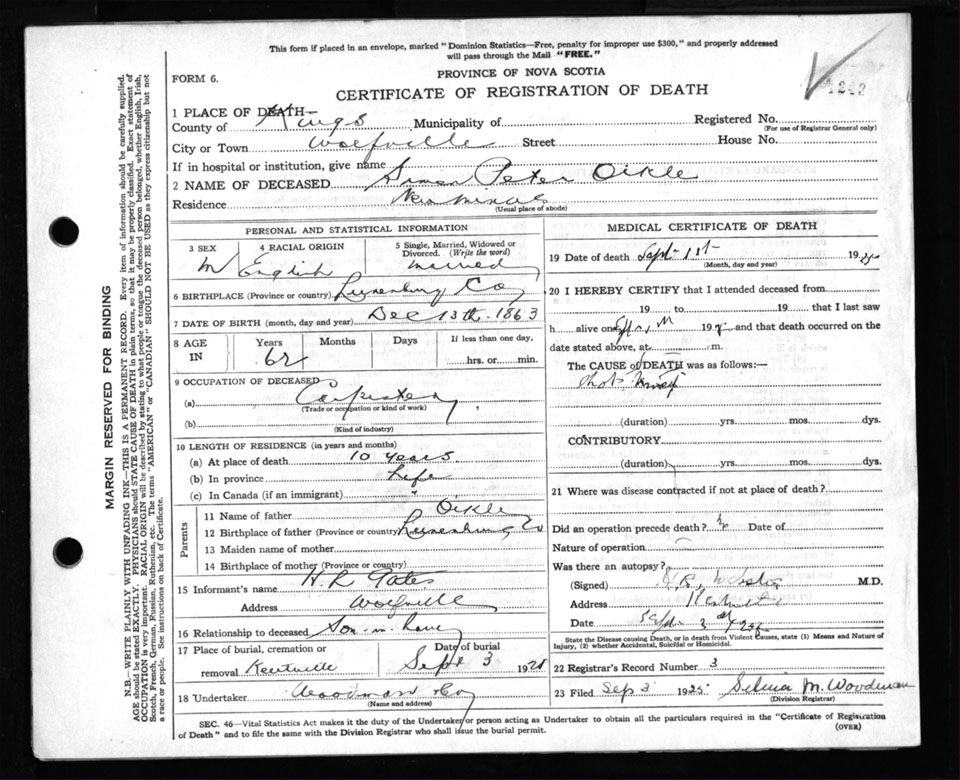 This form if placed in an envelope, marked "Dominion Statistics—Free, penalty for improper use $300," and properly addressed
will pass through the Mail "FREE."
FORM 6.
PROVINCE OF NOVA SCOTIA
CERTIFICATE OF REGISTRATION OF DEATH
1243
1 PLACE OF DEATH—
County of Kings Municipality of Registered No.
(For use of Registrar General only)
City or Town Wolfville Street House No.
If in hospital or institution, give name
2 NAME OF DECEASED Peter Oikle
Residence New Minas
(Usual place of abode)
PERSONAL AND STATISTICAL INFORMATION
3 SEX 4 RACIAL ORIGIN 5 Single, Married, Widowed or
Divorced. (Write the word)
M English married
6 BIRTHPLACE (Province or country) Lunenburg Co
7 DATE OF BIRTH (month, day and year) Dec 13th 1863
8 AGE IN Years Months Days If less than one day,
62 hrs. or min.
9 OCCUPATION OF DECEASED
(a) Carpenter
(Trade or occupation or kind of work)
(b)
(Kind of industry)
10 LENGTH OF RESIDENCE (in years and months)
(a) At place of death 10 years
(b) In province Life
(c) In Canada (if an immigrant)
Parents
11 Name of father Oikle
12 Birthplace of father (Province or country) Lunenburg Co
13 Maiden name of mother
14 Birthplace of mother (Province or country)
15 Informant's name H R Gates
Address Wolfville
16 Relationship to deceased Son in law
17 Place of burial, cremation or Date of burial
removal Kentville Sept 3 192
18 Undertaker Woodman Co
(Name and address)
MEDICAL CERTIFICATE OF DEATH
19 Date of death Sept 1st 192
(Month, day and year)
20 I HEREBY CERTIFY that I attended deceased from
19 to 19 that I last saw
h alive on 19 and that death occurred on the
date stated above, at m.
The CAUSE of DEATH was as follows:—
(duration) yrs. mos. dys.
CONTRIBUTORY
(duration) yrs. mos. dys.
21 Where was disease contracted if not at place of death?
Did an operation precede death? Date of
Nature of operation
Was there an autopsy?
(Signed) M.D.
Address
Date Sept 3
State the Disease causing Death, or in death from Violent Causes, state (1) Means and Nature of
Injury, (2) whether Accidental, Suicidal or Homicidal.
22 Registrar's Record Number 3
23 Filed Sep 3 1925 M. Woodman
(Division Registrar)
SEC. 46—Vital Statistics Act makes it the duty of the Undertaker or person acting as Undertaker to obtain all the particulars required in the "Certificate of Registration
of Death" and to file the same with the Division Registrar who shall issue the burial permit.
(OVER)
MARGIN RESERVED FOR BINDING
N.B.—WRITE PLAINLY WITH UNFADING INK—THIS IS A PERMANENT RECORD. Every item of information should be carefully supplied.
AGE should be stated EXACTLY. PHYSICIANS should STATE CAUSE OF DEATH in plain terms, so that it may be properly classified. Exact statement of
OCCUPATION is very important. RACIAL ORIGIN will be described by stating to what people or tongue the deceased person belonged, whether English, Irish,
Scotch, French, German, Russian, Ruthenian, etc. The terms "AMERICAN" or "CANADIAN" SHOULD NOT BE USED as they express citizenship but not
a race or people. See instructions on back of Certificate.